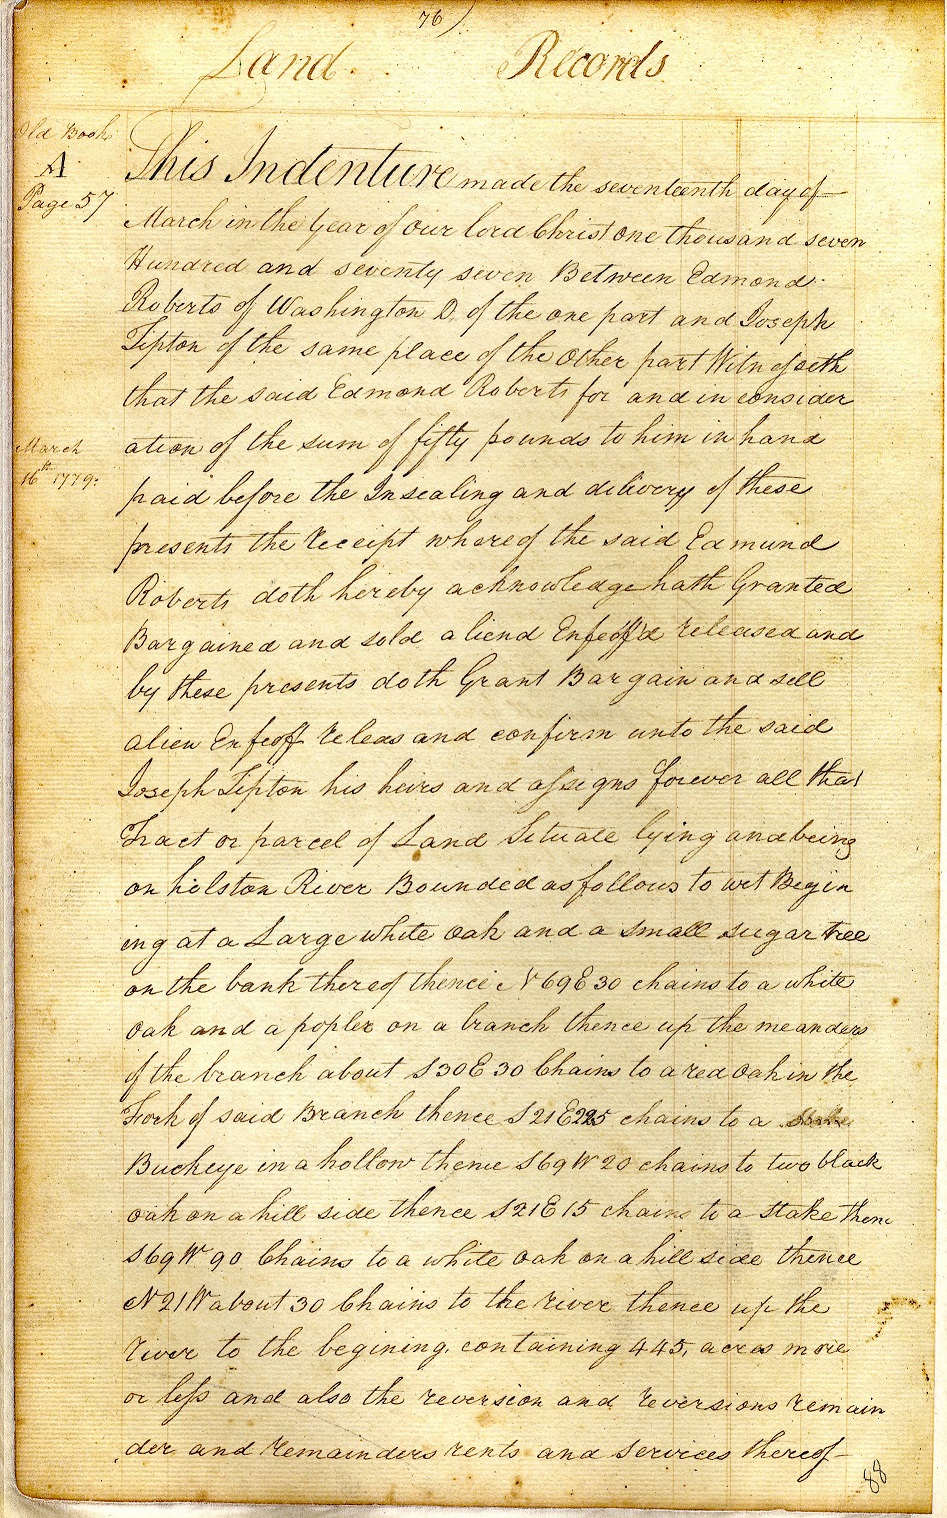 76)
Land Records
Old Book
A
Page 57
This Indenture made the seventeenth day of
March in the year of our lord Christ one thousand seven
Hundred and seventy seven Between Edmond
Roberts of Washington D. of the one part and Joseph
Tipton of the same place of the other part Witnesseth
that the said Edmond Roberts for and in consider
ation of the sum of fifty pounds to him in hand
March
16th 1779.
paid before the Insealing and delivery of these
presents the receipt whereof the said Edmund
Roberts doth hereby acknowledge hath Granted
Bargained and sold aliend Enfeoff'd released and
by these presents doth Grant Bargain and sell
alien Enfeoff releas and confirm unto the said
Joseph Tipton his heirs and assigns forever all that
Tract or parcel of Land Situate lying and being
on holston River Bounded as follows to wit Begin
ing at a Large white oak and a small sugar tree
on the bank thereof thence N 69 E 30 chains to a white
oak and a popler on a branch thence up the meanders
of the branch about S 30 E 30 Chains to a red oak in the
Fork of said Branch thence S 21 E 225 chains to a
Buckeye in a hollow thence S 69 W 20 chains to two black
oak on a hill side thence S 21 E 15 chains to a stake thenc
S 69 W 90 Chains to a white oak on a hill side thence
N 21 W about 30 Chains to the river thence up the
river to the begining. containing 445, acres more
or less and also the reversion and reversions remain
der and remainders rents and services thereof
88